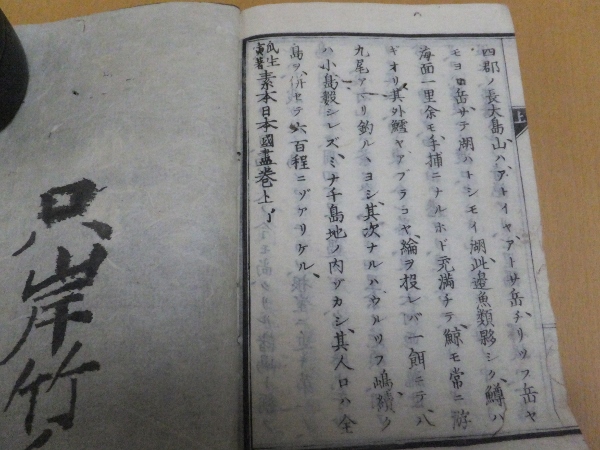 四郡ノ長大島山ハアトイヤ、アトサ岳、チリツフ岳、ヤ
モヨロ岳、サテ湖ハトシモイ湖、此邊魚類夥シク、鱒ハ
海面一里余モ、手捕ニナルホド充満チテ、鯨モ常ニ游
ギオリ、其外鱈ヤアブラコヤ、綸ヲ投レバ一餌ニテ、八
九尾アマリ釣ルハヨシ、其次ナルハウルツフ嶋、續ク
ハ小島數シレズ、ミナ千島地ノ内ヅカシ、其人口ハ全
島ヲ併セテ六百程ニゾアリケル、
素本日本國盡卷上
上
只岸竹